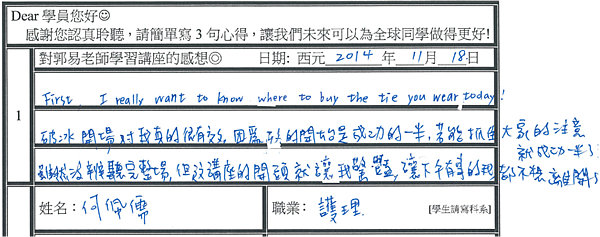 Dear 學員您好☺
感謝您認真聆聽，請簡單寫 3 句心得，讓我們未來可以為全球同學做得更好!
對郭易老師學習講座的感想◎ 日期: 西元 2014 年 11 月 18 日
1
First, I really want to know where to buy the tie you wear today!
破冰開場對我真的很有效，因為好的開始是成功的一半，若能抓住大家的注意
就成功一半了
雖然沒辦法聽完整場，但這講座的開頭就讓我驚豔，讓下午有事的我都不想離開!
姓名: 何佩儒 職業: 護理 [學生請寫科系]